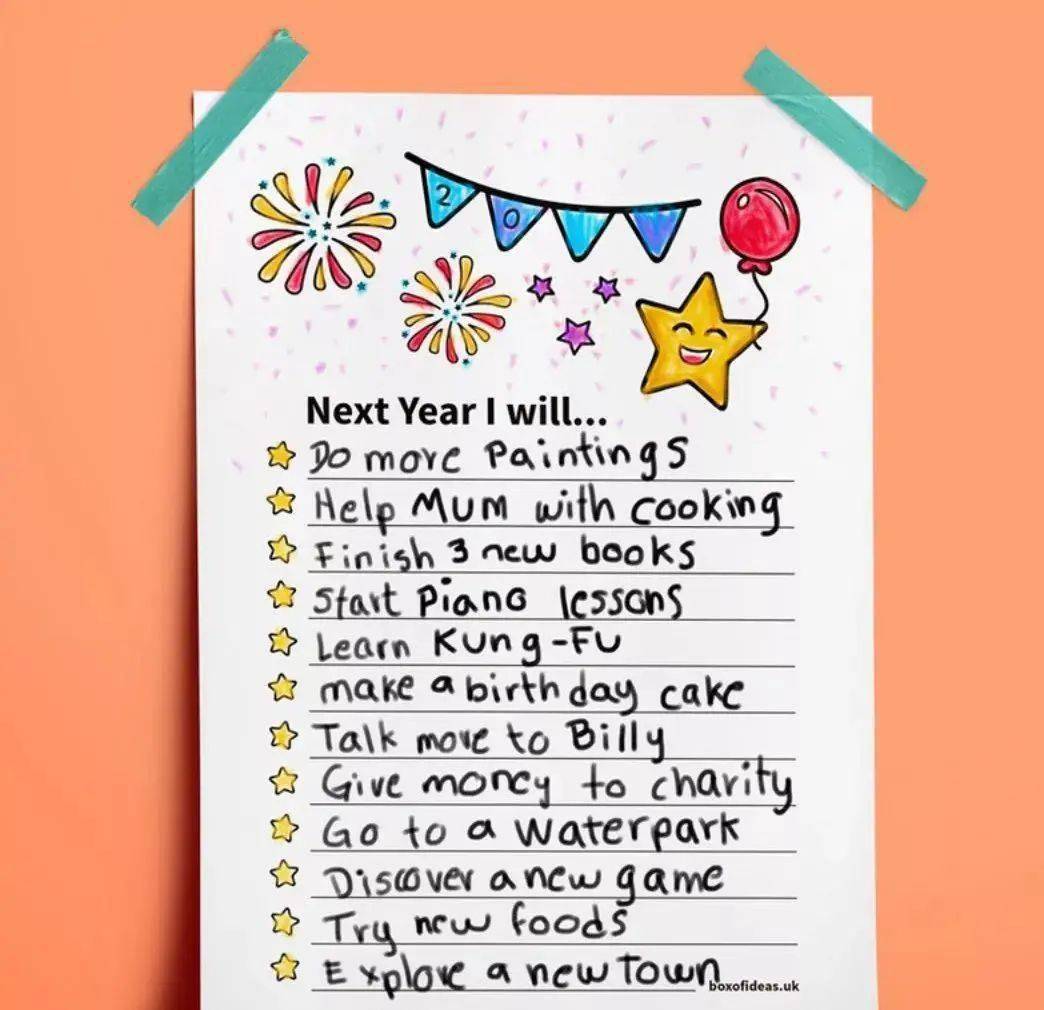 2 0
Next Year I will...
Do more Paintings
Help Mum with cooking
Finish 3 new books
Start Piano lessons
Learn Kung-Fu
make a birthday cake
Talk more to Billy
Give money to charity
Go to a waterpark
Discover a new game
Try new foods
Explore a new Town
boxofideas.uk